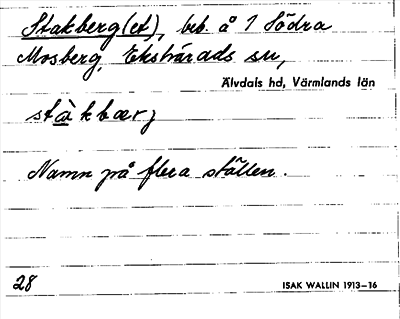 Stakberg(et), beb. å 1 Södra
Mosberg, Ekshärads sn,
Älvdals hd, Värmlands län
stàkbærj
Namn på flera ställen.
28
ISAK WALLIN 1913–16